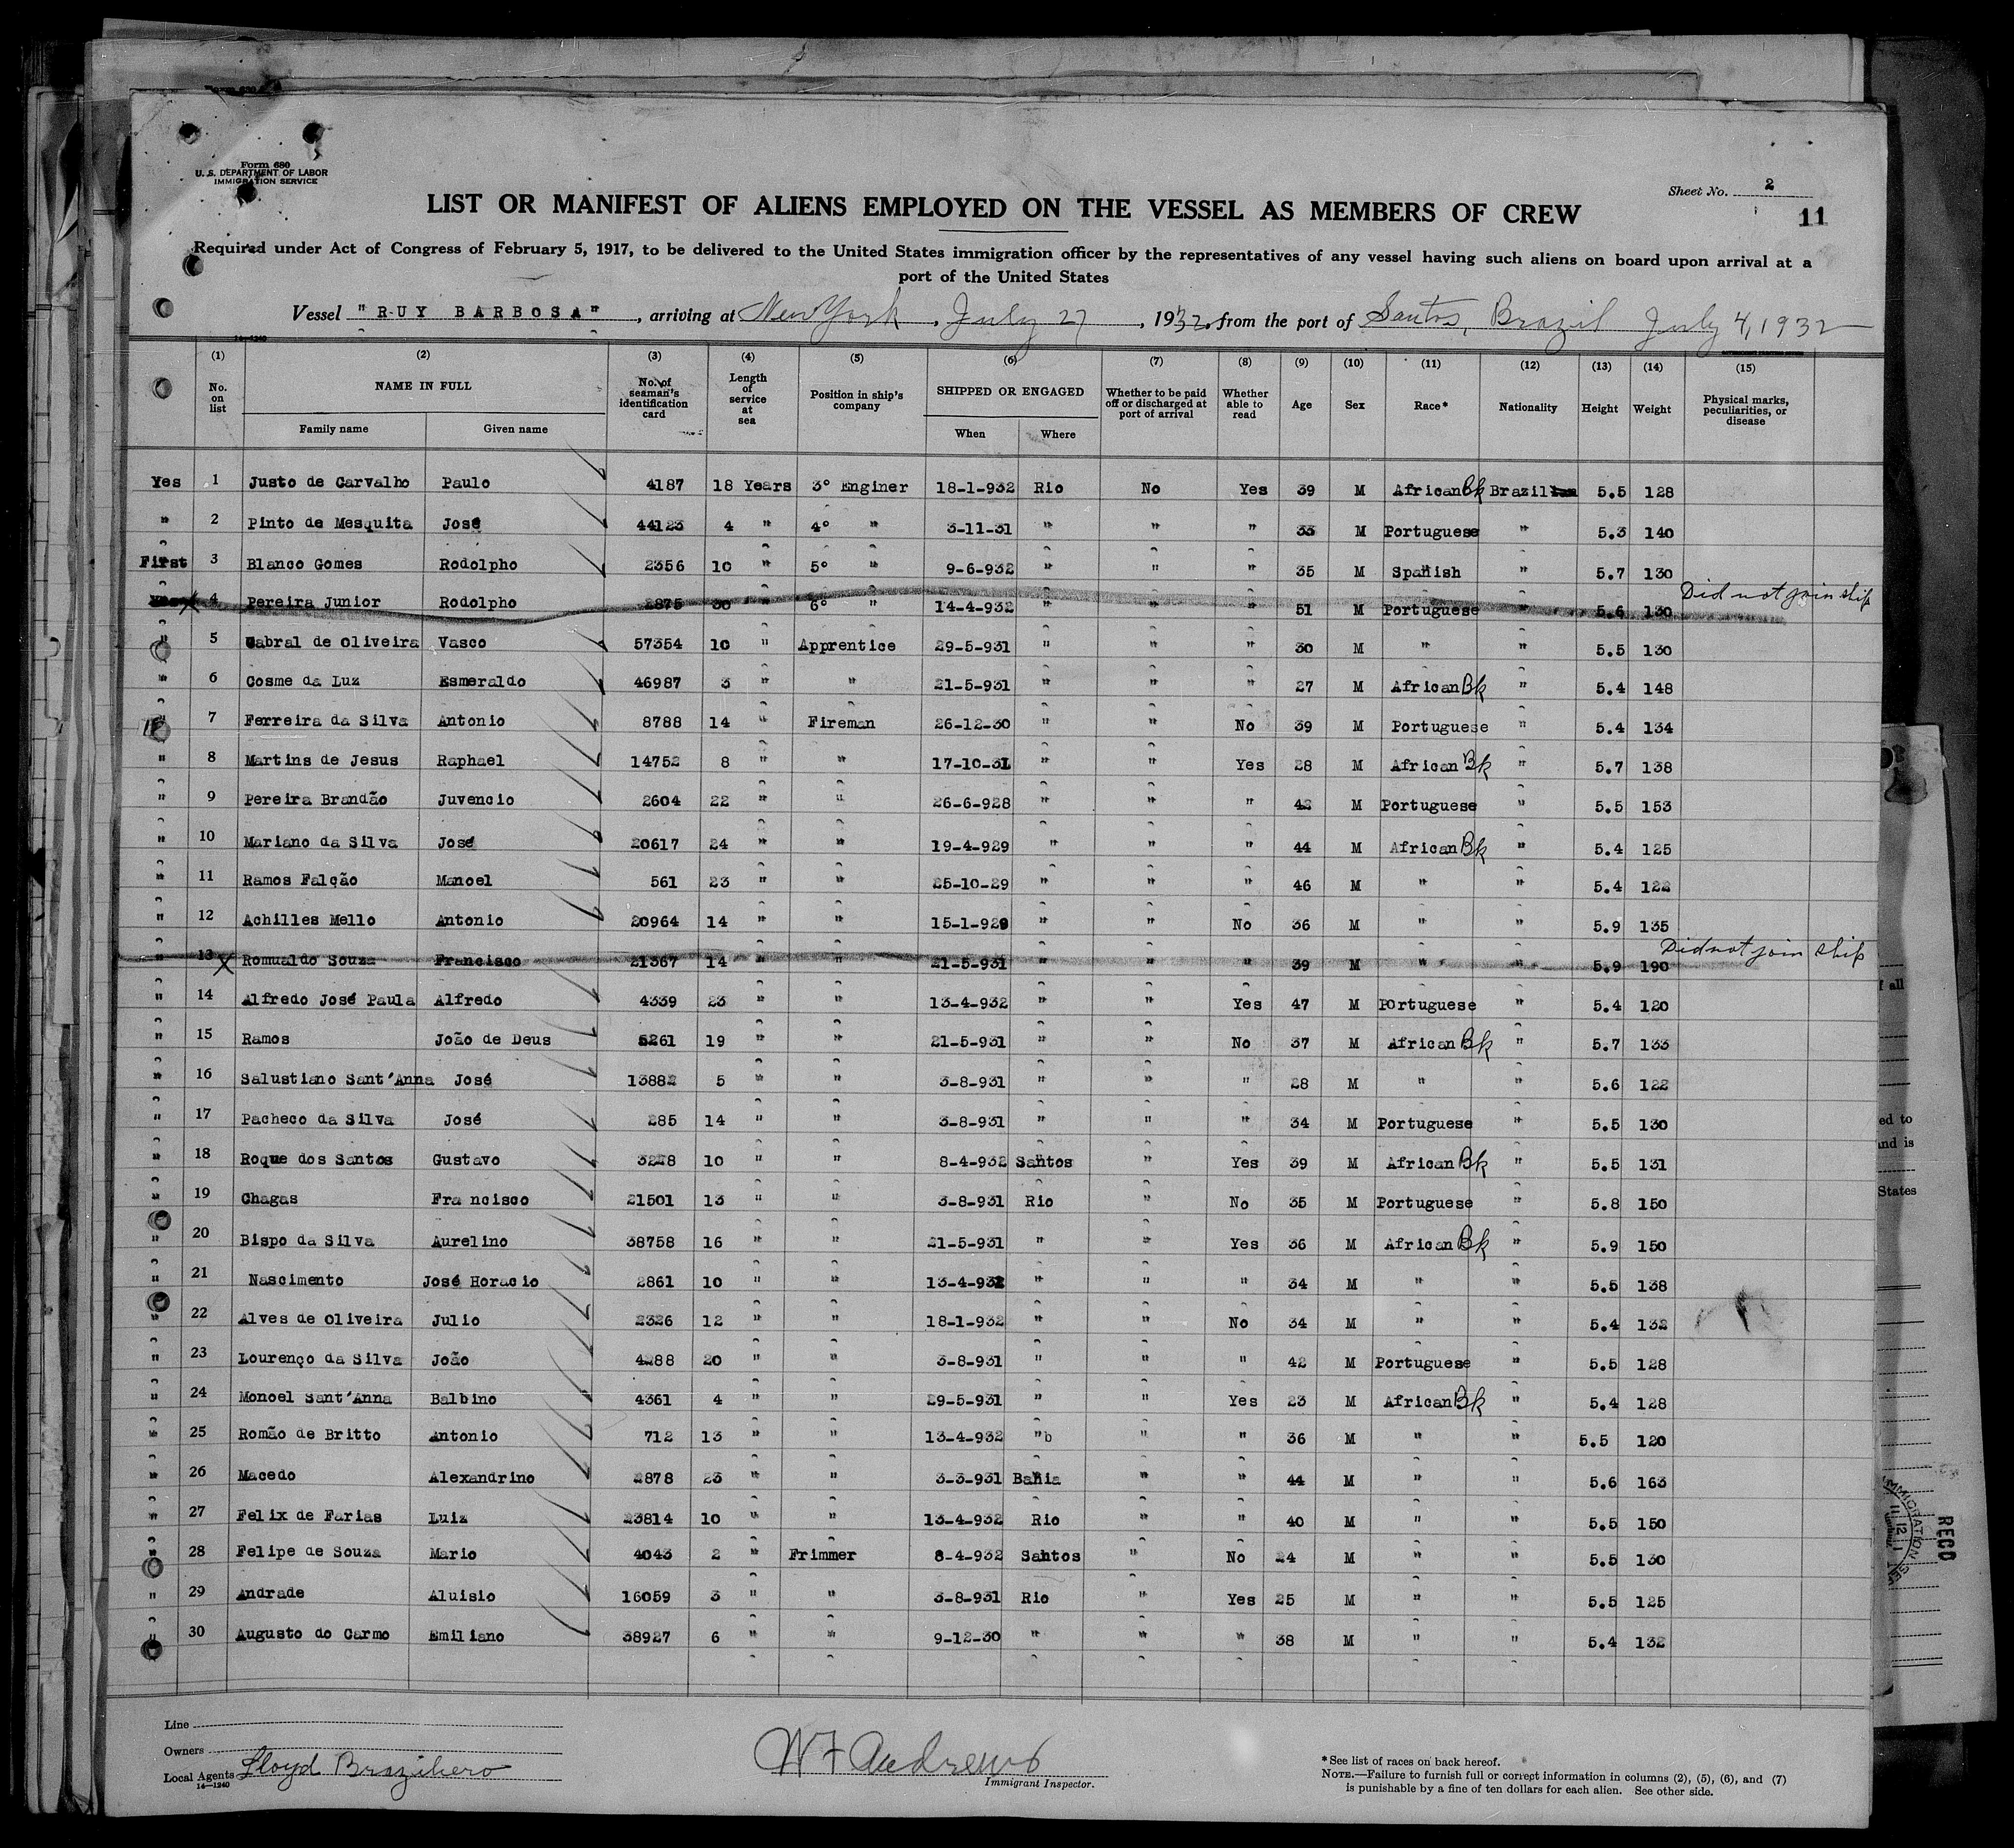 Form 680
U. S. DEPARTMENT OF LABOR
IMMIGRATION SERVICE
Sheet No. 2
LIST OR MANIFEST OF ALIENS EMPLOYED ON THE VESSEL AS MEMBERS OF CREW
11
Required under Act of Congress of February 5, 1917, to be delivered to the United States immigration officer by the representatives of any vessel having such aliens on board upon arrival at a
port of the United States
Vessel "RUY BARBOSA", arriving at New York, July 27, 1932, from the port of Santos, Brazil July 4, 1932
14—1240
(1) (2) (3) (4) (5) (6) (7) (8) (9) (10) (11) (12) (13) (14) (15)
No. on list NAME IN FULL No. of seaman's identification card Length of service at sea Position in ship's company SHIPPED OR ENGAGED Whether to be paid off or discharged at port of arrival Whether able to read Age Sex Race* Nationality Height Weight Physical marks, peculiarities, or disease
Family name Given name When Where
Yes 1 Justo de Carvalho Paulo 4187 18 Years 3° Enginer 18-1-932 Rio No Yes 39 M African Bk Brazil 5.5 128
" 2 Pinto de Mesquita José 44123 4 " 4° " 3-11-31 " " " 33 M Portuguese " 5.3 140
First 3 Blanco Gomes Rodolpho 2356 10 " 5° " 9-6-932 " " " 35 M Spanish " 5.7 130
Yes x 4 Pereira Junior Rodolpho 2875 30 " 6° " 14-4-932 " " " 51 M Portuguese " 5.6 130 Did not join ship
" 5 Cabral de Oliveira Vasco 57354 10 " Apprentice 29-5-931 " " " 30 M " " 5.5 130
" 6 Cosme da Luz Esmeraldo 46987 3 " " 21-5-931 " " " 27 M African Bk " 5.4 148
" 7 Ferreira da Silva Antonio 8788 14 " Fireman 26-12-30 " " No 39 M Portuguese " 5.4 134
" 8 Martins de Jesus Raphael 14752 8 " " 17-10-31 " " Yes 28 M African Bk " 5.7 138
" 9 Pereira Brandão Juvencio 2604 22 " " 26-6-928 " " " 42 M Portuguese " 5.5 153
" 10 Mariano da Silva José 20617 24 " " 19-4-929 " " " 44 M African Bk " 5.4 125
" 11 Ramos Falção Manoel 561 23 " " 25-10-29 " " " 46 M " " 5.4 122
" 12 Achilles Mello Antonio 20964 14 " " 15-1-929 " " No 36 M " " 5.9 135
" 13 x Romualdo Souza Francisco 21367 14 " " 21-5-931 " " " 39 M " " 5.9 190 Did not join ship
" 14 Alfredo José Paula Alfredo 4339 23 " " 13-4-932 " " Yes 47 M POrtuguese " 5.4 120
" 15 Ramos João de Deus 5261 19 " " 21-5-931 " " No 37 M African Bk " 5.7 133
" 16 Salustiano Sant'Anna José 13882 5 " " 3-8-931 " " " 28 M " " 5.6 122
" 17 Pacheco da Silva José 285 14 " " 3-8-931 " " " 34 M Portuguese " 5.5 130
" 18 Roque dos Santos Gustavo 3228 10 " " 8-4-932 Santos " Yes 39 M African Bk " 5.5 131
" 19 Chagas Francisco 21501 13 " " 3-8-931 Rio " No 35 M Portuguese " 5.8 150
" 20 Bispo da Silva Aurelino 38758 16 " " 21-5-931 " " Yes 36 M African Bk " 5.9 150
" 21 Nascimento José Horacio 2861 10 " " 13-4-932 " " " 34 M " " 5.5 138
" 22 Alves de Oliveira Julio 2326 12 " " 18-1-932 " " No 34 M " " 5.4 132
" 23 Lourenço da Silva João 4288 20 " " 3-8-931 " " " 42 M Portuguese " 5.5 128
" 24 Monoel Sant'Anna Balbino 4361 4 " " 29-5-931 " " Yes 23 M African Bk " 5.4 128
" 25 Romão de Britto Antonio 712 13 " " 13-4-932 "b " " 36 M " " 5.5 120
" 26 Macedo Alexandrino 2878 23 " " 3-3-931 Bahia " " 44 M " " 5.6 163
" 27 Felix de Farias Luiz 23814 10 " " 13-4-932 Rio " " 40 M " " 5.5 150
" 28 Felipe de Souza Mario 4043 2 " Frimmer 8-4-932 Santos " No 24 M " " 5.5 130
" 29 Andrade Aluisio 16059 3 " " 3-8-931 Rio " Yes 25 M " " 5.5 125
" 30 Augusto do Carmo Emiliano 38927 6 " " 9-12-30 " " " 38 M " " 5.4 132
Line
Owners
Local Agents Lloyd Brazileiro
14—1240
W F Andrews
Immigrant Inspector.
*See list of races on back hereof.
NOTE.—Failure to furnish full or correct information in columns (2), (5), (6), and (7)
is punishable by a fine of ten dollars for each alien. See other side.
f all
ed to
and is
States
IMMIGRATION
RECD